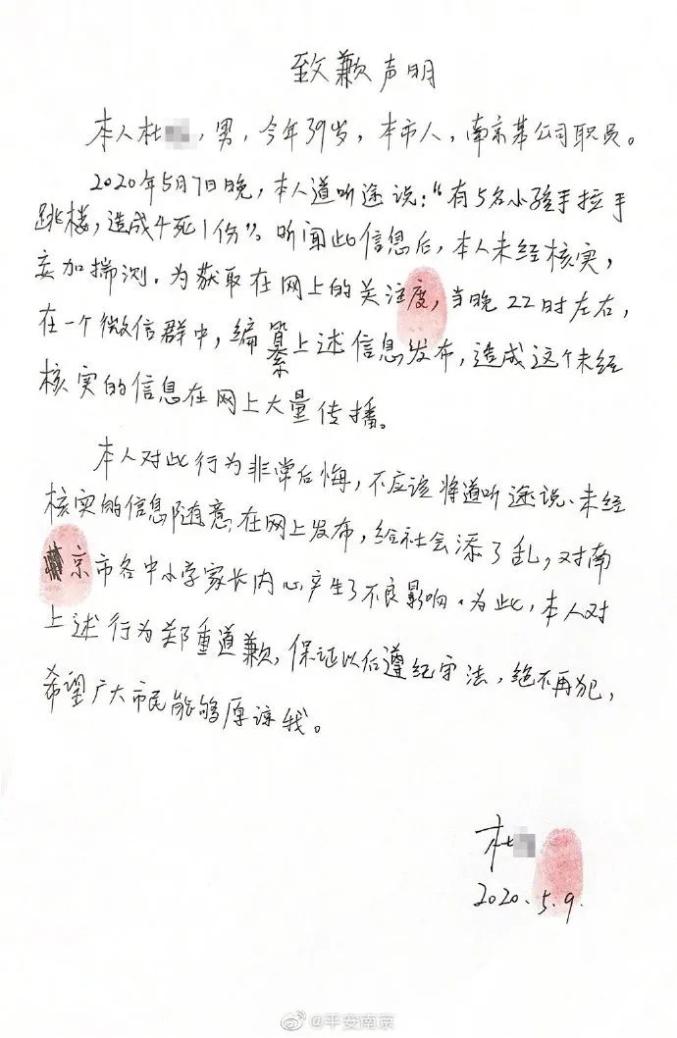 致歉声明
本人杜 ，男，今年39岁，本市人，南京某公司职员。
2020年5月7日晚，本人道听途说：“有5名小孩手拉手
跳楼，造成4死1份”。听闻此信息后，本人未经核实，
妄加揣测，为获取在网上的关注度，当晚22时左右，
在一个微信群中，编纂上述信息发布，造成这个未经
核实的信息在网上大量传播。
本人对此行为非常后悔，不应该将道听途说、未经
核实的信息随意在网上发布，给社会添了乱，对南
京市各中小学家长内心产生了不良影响。为此，本人对
上述行为郑重道歉，保证以后遵纪守法，绝不再犯，
希望广大市民能够原谅我。
杜
2020.5.9.
@平安南京